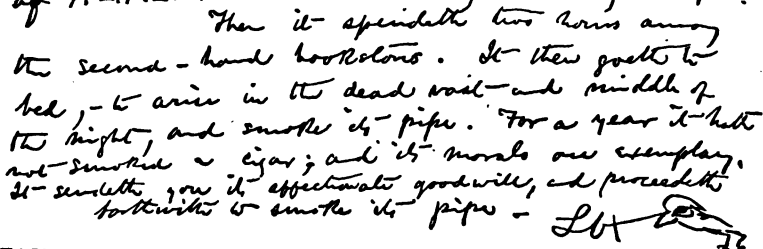 Then it spendeth two hours among
the second-hand bookstores. It then goeth to
bed,- to arise in the dead vast and middle of
the night, and smoke its pipe. For a year it hath
not smoked a cigar; and its morals are exemplary.
It sendeth you its affectionate good will, and proceedeth
forthwith to smoke its pipe -